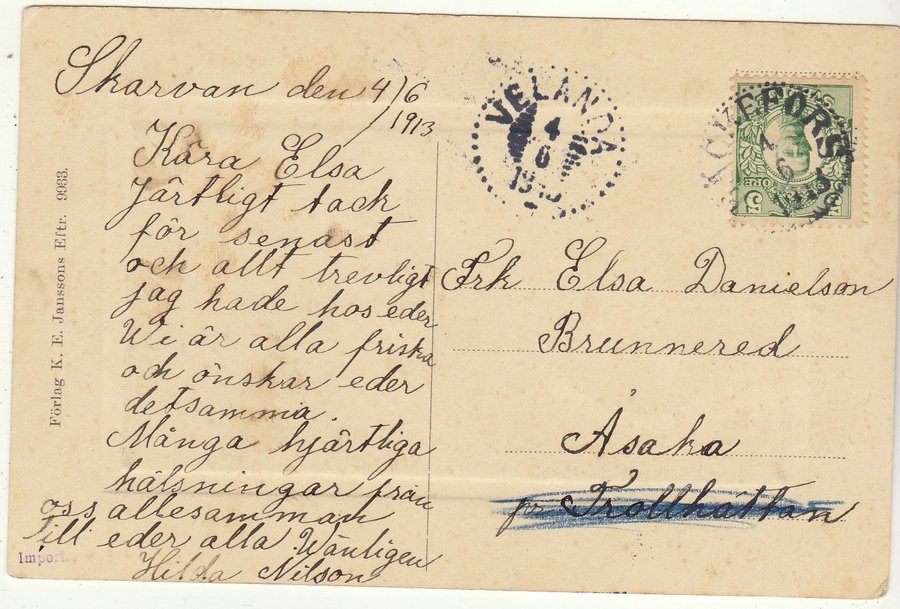 Skarvan den 4/6
1913
Kära Elsa
Järtligt tack
för senast
och allt trevligt
jag hade hos eder
Wi är alla friska
och önskar eder
detsamma.
Många hjärtliga
hälsningar från
oss allesamman
till eder alla Wänligen
Hilda Nilson
VELANDA
4
6
1913
Frk Elsa Danielson
Brunnered
Åsaka
pr Trollhättan
Förlag K. E. Janssons Eftr. 9963.
Import.